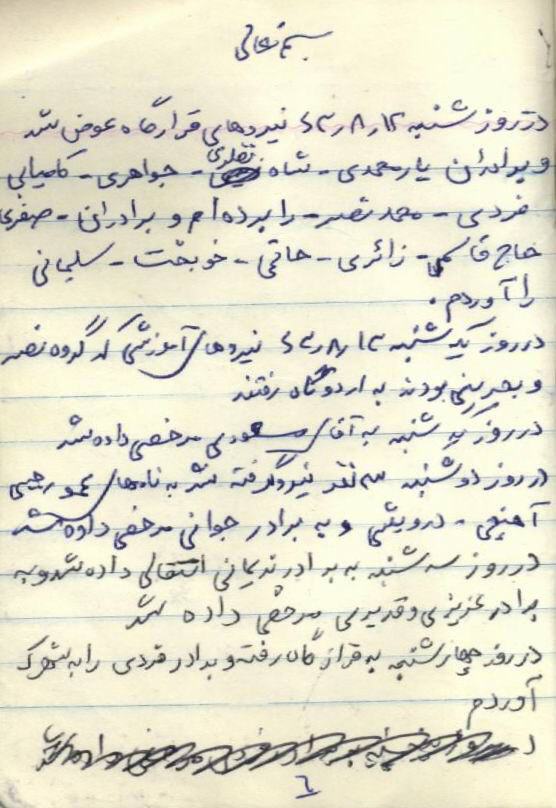 بسمه تعالی
در روز شنبه ۱۲ر۸ر۶۳ نیروهای قرارگاه عوض شد
و برادران یارمحمدی - شاه نظری - جواهری - کامیابی
فردی - محمد نصر - را برده ام و برادران - صفری
حاج قاسم - زائری - حاتمی - خوبخت - سلیمانی
را آوردم .
در روز یکشنبه ۱۳ر۸ر۶۳ نیروهای آموزشی که گروه نصر
و بحرینی بودند به اردوگاه رفتند
در روز یکشنبه به آقای مسعودی مرخصی داده شد
در روز دوشنبه سه نفر نیرو گرفته شد به نامهای رحیمی
آهنچی - درویشی و به برادر جوانی مرخصی داده شد
در روز سه شنبه به برادر نریمانی انتقالی داده شد و به
برادر عزیزی و قدیری مرخصی داده شد
در روز چهارشنبه به قرارگاه رفته و برادر فردی را به شهرک
آوردم
۶